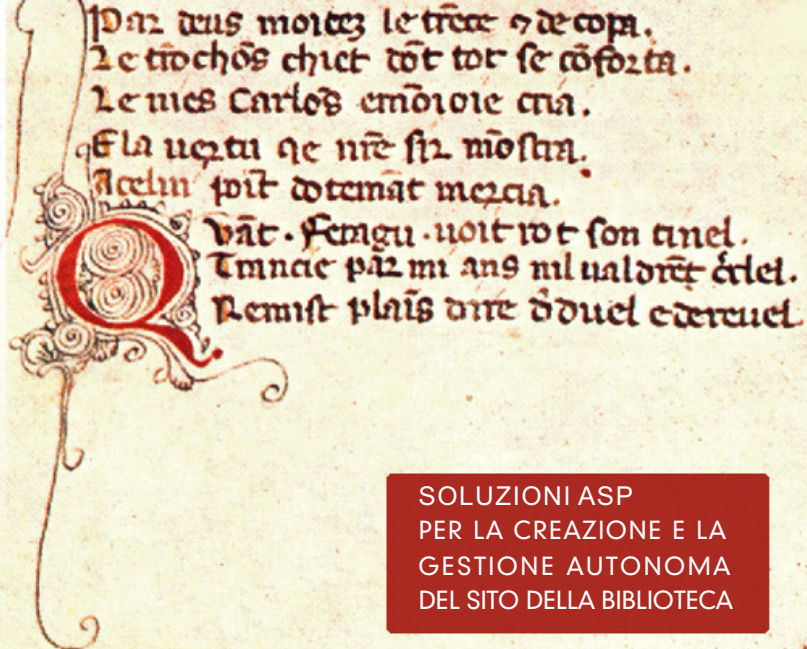 Par deus moitez le trēce ⁊ de copa.
Le trōchōs chiet dōt tot se cōforta.
Le nies Carlōs emōioie cria.
E la uertu qe nr̄e sir mōstra.
Acelin poīt
Q
Vāt · Feragu · uoit rot son cinel.
Trincie par mi ans nil ualdrēt
Remist plaīs dire d duel e dereuel.
SOLUZIONI ASP
PER LA CREAZIONE E LA
GESTIONE AUTONOMA
DEL SITO DELLA BIBLIOTECA